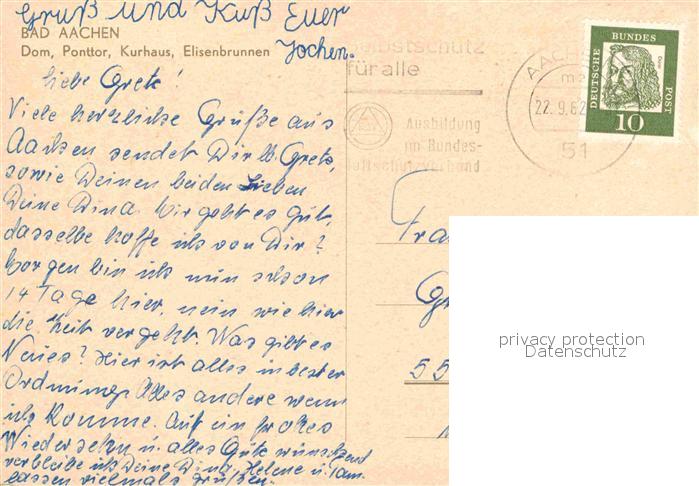 Gruß und Kuß Euer
Jochen.
BAD AACHEN
Dom, Ponttor, Kurhaus, Elisenbrunnen
Liebe Grete!
Viele herzliche Grüße aus
Aachen sendet Dir lb. Grete,
sowie Deinen beiden Lieben
Deine Dina. Mir geht es gut,
dasselbe hoffe ich von Dir?
Morgen bin ich nun schon
14 Tage hier, nein wie hier
die Zeit vergeht. Was gibt es
Neues? Hier ist alles in bester
Ordnung. Alles andere wenn
ich komme. Auf ein frohes
Wiedersehn u. alles Gute wünschend
verbleibe ich Deine Dina, Helene u. Fam.
lassen vielmals grüßen.
Selbstschutz
für alle
Ausbildung
im Bundes-
luftschutzverband
AACHEN
22.9.62
51
DEUTSCHE BUNDESPOST
Dürer
10
Fra
Gr
55
privacy protection
Datenschutz